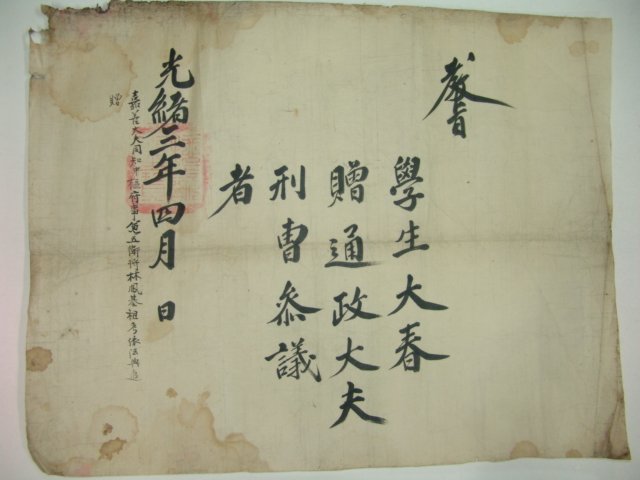 敎旨
學生大春
贈通政大夫
刑曹叅議
者
光緖三年四月 日
嘉善大夫同知中樞府事兼五衛將林鳳基祖考依法典追
贈